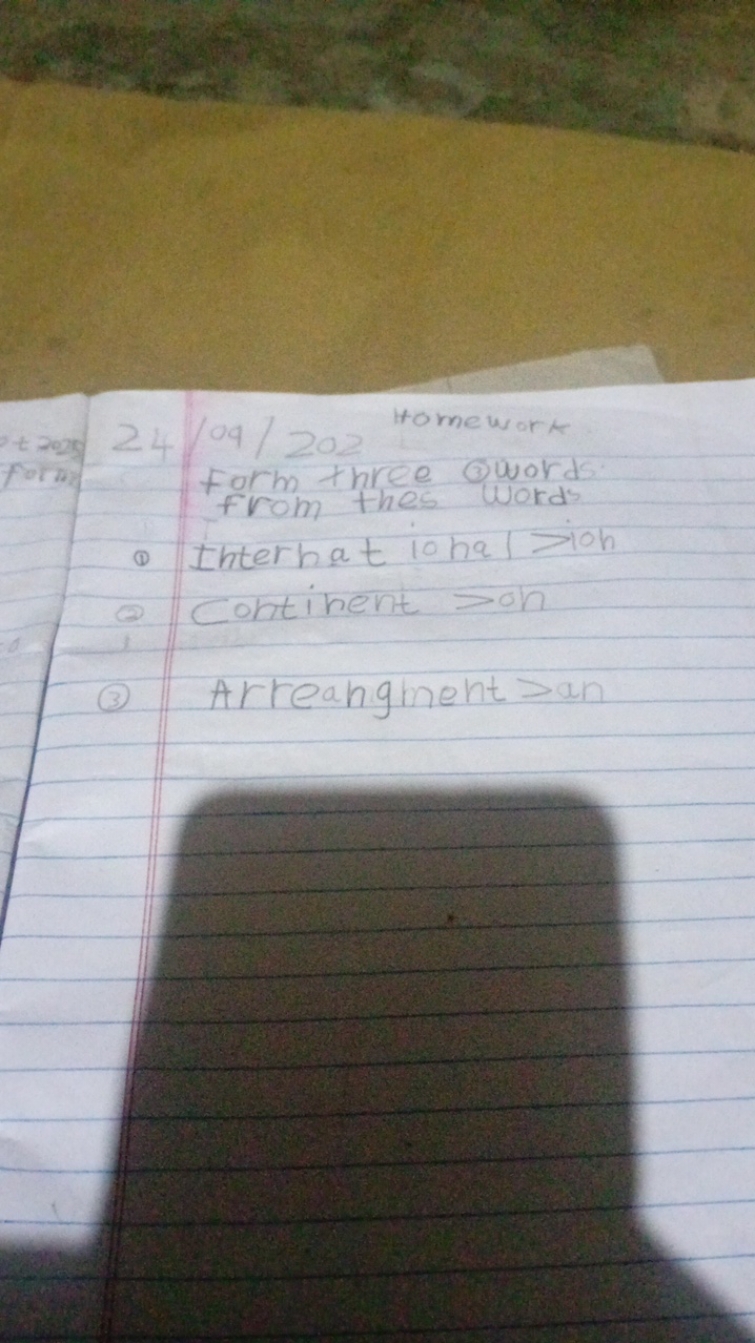 Homework
24/09/202
Form three ③words
from thes words
① International >ion
② Continent >on
③ Arreangment >an